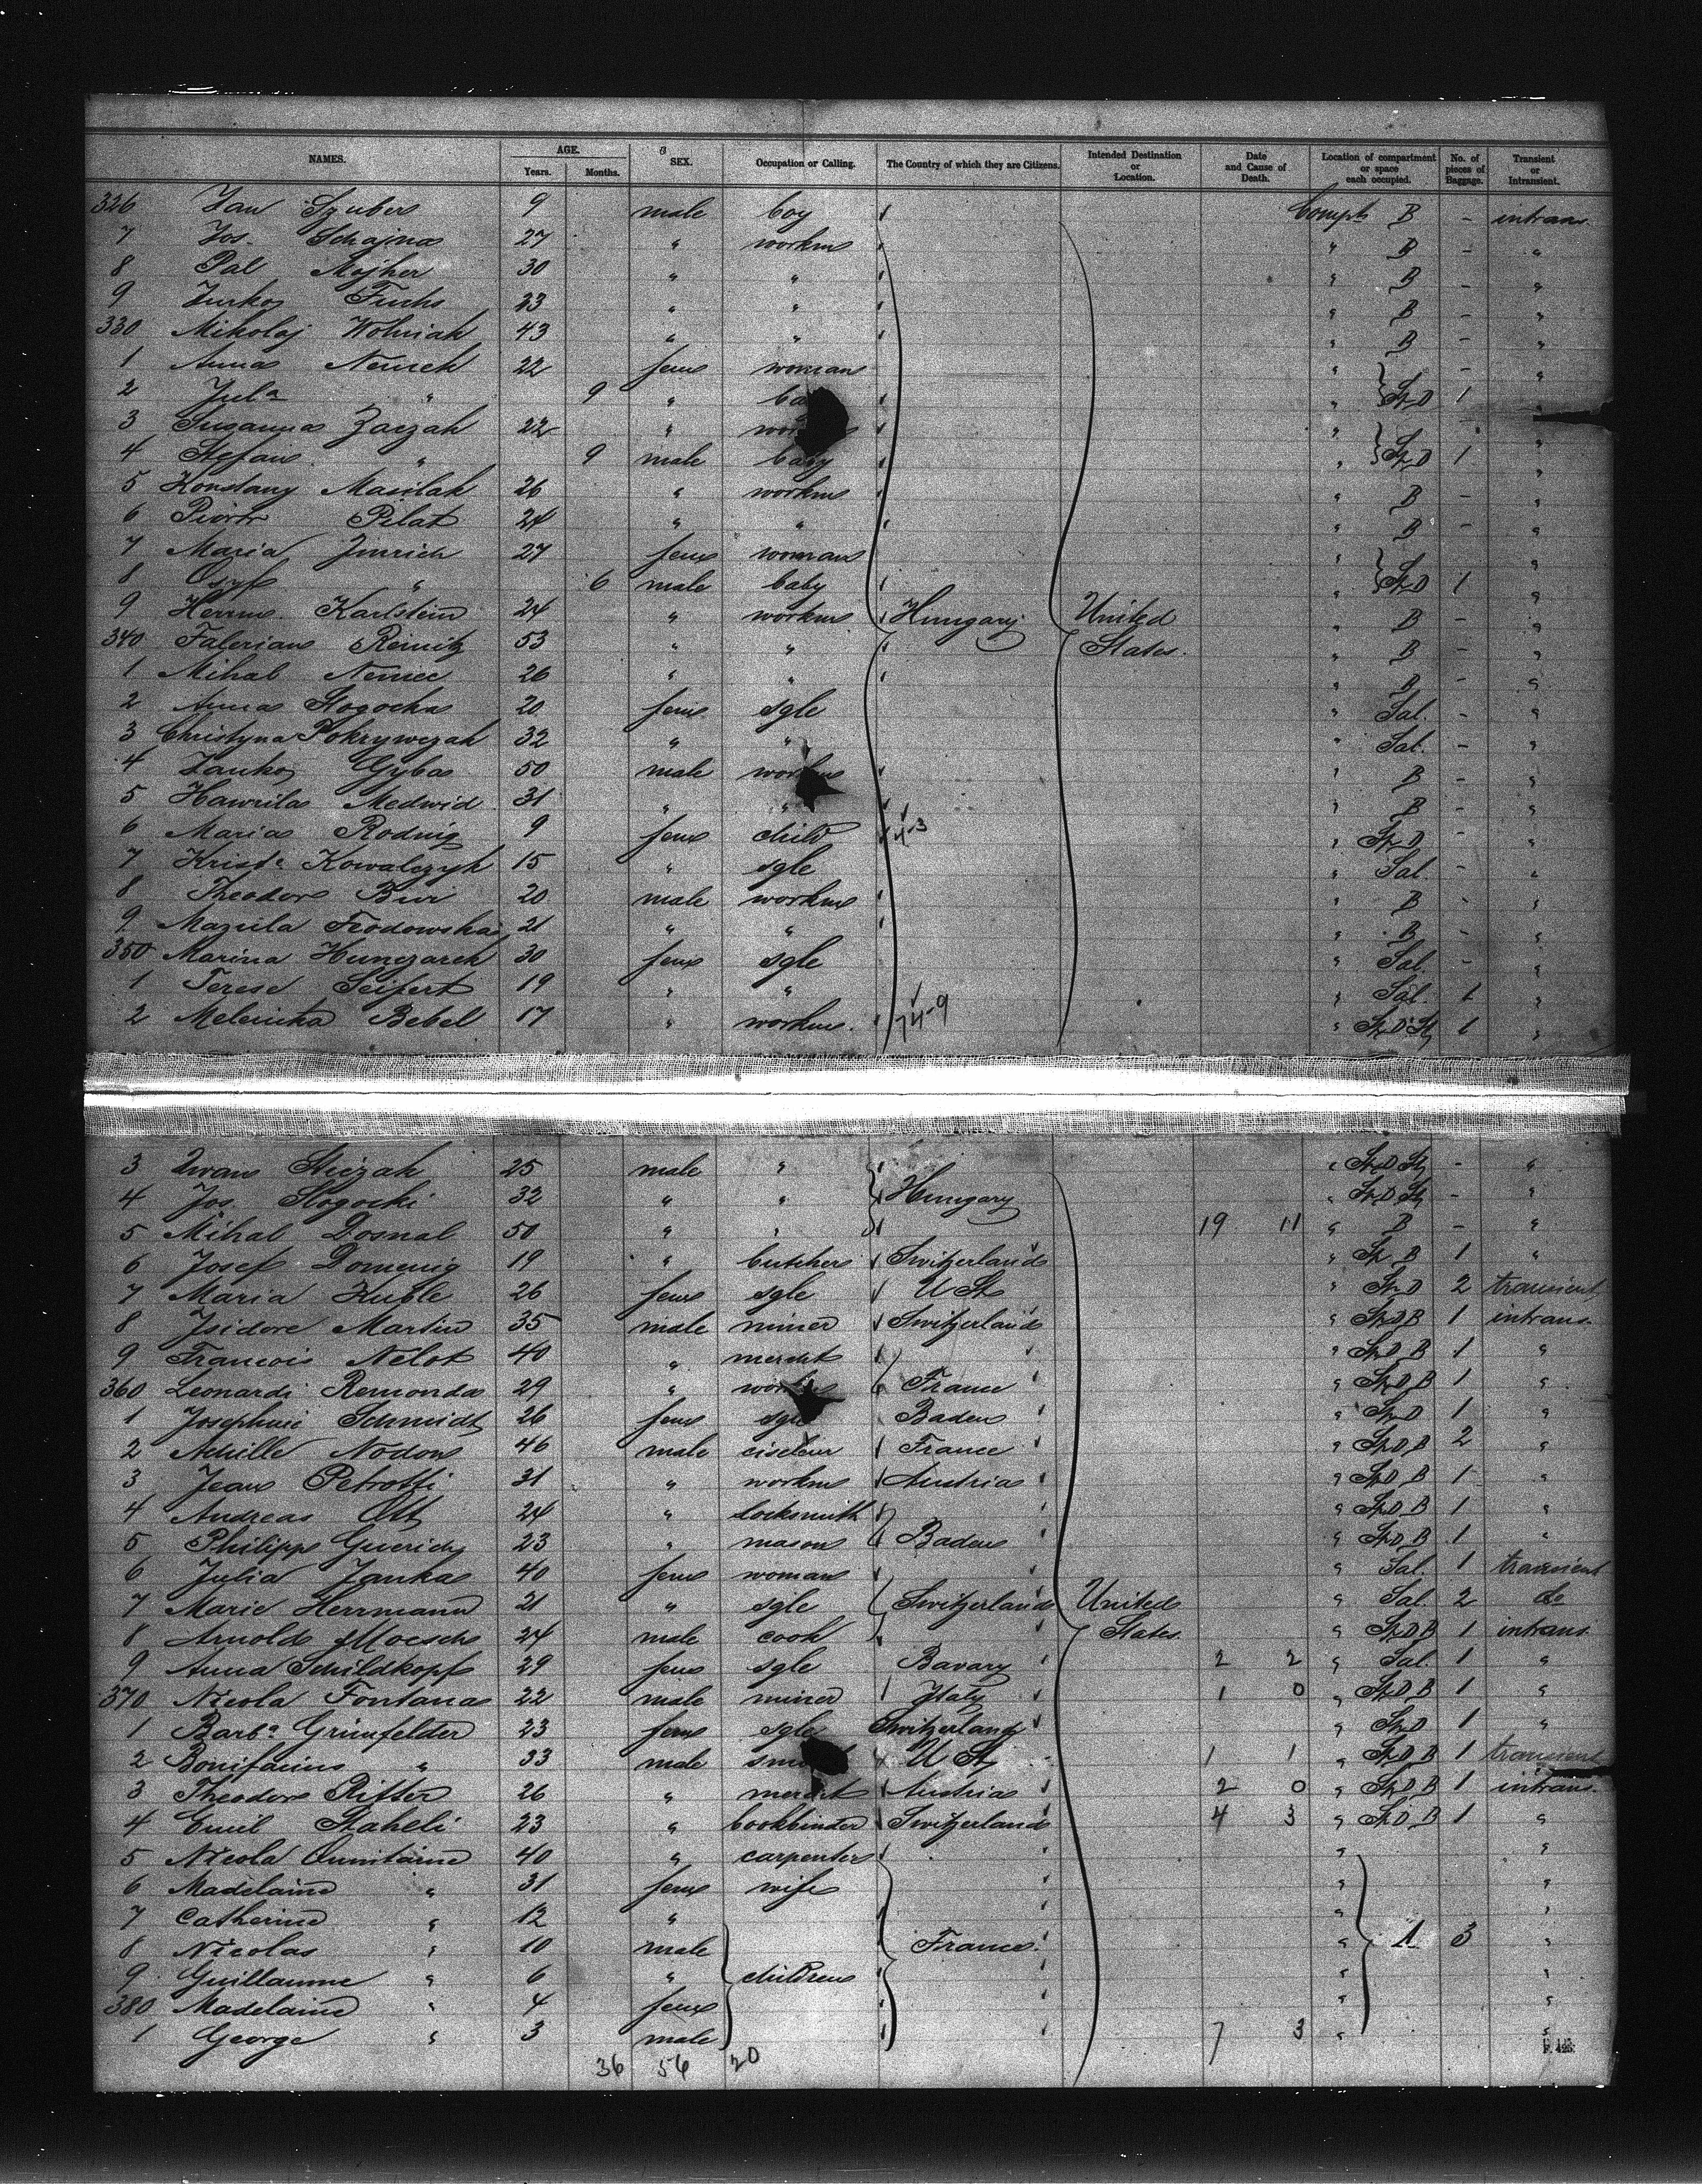 NAMES. AGE. SEX. Occupation or Calling. The Country of which they are Citizens. Intended Destination or Location. Date and Cause of Death. Location of compartment or space each occupied. No. of pieces of Baggage. Transient or Intransient.
Years. Months.
326 Jan Szuber 9 male boy Compt. B - intrans.
7 Jos. Schajna 27 " workm " B - "
8 Pal Majher 30 " " " B - "
9 Fuchs 23 " " " B - "
330 Mikolaj Wolniak 43 " " " B - "
1 Anna 22 fem woman " "
2 Jula " 9 " " StD 1 "
3 Susanna Zaczak 22 " "
4 Stefan " 9 male baby " StD 1 "
5 Konstany Masilak 26 " workm " B - "
6 Piotr Pilat 24 " " " B - "
7 Maria Zinrich 27 fem woman "
8 Osyf " 6 male baby " StD 1 "
9 Herrm. Karlstein 24 " workm Hungary United " B - "
340 Falerian Reinitz 53 " " States. " B - "
1 Mihal Nemec 26 " " " B - "
2 Anna Stogocka 20 fem sgle " Sal. - "
3 Christyna Pokrywczak 32 " " " Sal. - "
4 Janko Gyba 50 male workm " B - "
5 Hawrila Medwid 31 " " " B - "
6 Maria Rodnig 9 fem child 4-3 " StD - "
7 Krista Kowalczyk 15 " sgle " Sal. - "
8 Theodor Bur 20 male workm " B - "
9 Frodowska 21 " " " B - "
350 Marina Hunczarek 30 fem sgle " Sal. - "
1 Terese Seifert 19 " " " Sal. 1 "
2 Bebel 17 " workm. 74-9 " 1 "
3 Iwan 25 male " " - "
4 Jos. Stogocki 32 " " Hungary " - "
5 Mihal Dosnal 50 " " 19 11 " B - "
6 Josef Domenig 19 " butcher Switzerland " St B 1 "
7 Maria Kuble 26 fem sgle U St " StD 2 transient
8 Isidore Martin 35 male miner Switzerland " StDB 1 intrans.
9 Francois Nelot 40 " mercht " StDB 1 "
360 Leonardi Remonda 29 " France " StDB 1 "
1 Josephine Schmidt 26 fem sgle Baden " StD 1 "
2 Achille Nodon 46 male ciseleur France " StDB 2 "
3 Jean Petrotti 31 " workm Austria " StDB 1 "
4 Andreas Ott 24 " locksmith " StDB 1 "
5 Philipp 23 " mason Baden " StDB 1 "
6 Julia Janka 40 fem woman " Sal. 1 transient
7 Marie Herrmann 21 " sgle Switzerland United " Sal. 2 do
8 Arnold Moesch 24 male cook States. " StDB 1 intrans.
9 Anna Schildkopf 29 fem sgle Bavary 2 2 " Sal. 1 "
370 Nicola Fontana 22 male miner Italy 1 0 " StDB 1 "
1 Barba Grünfelder 23 fem sgle Switzerland " StD 1 "
2 Bonifacius " 33 male U St 1 1 " StDB 1 transient
3 Theodor Ritter 26 " mercht Austria 2 0 " StDB 1 intrans.
4 Emil Staheli 23 " bookbinder Switzerland 4 3 " StDB 1 "
5 Nicola 40 " carpenter " "
6 Madelaine " 31 fem wife " "
7 Catherine " 12 " " "
8 Nicolas " 10 male France. " A 3 "
9 Guillaume " 6 " children " "
380 Madelaine " 4 fem " "
1 George " 3 male 7 3 " "
36 56 20